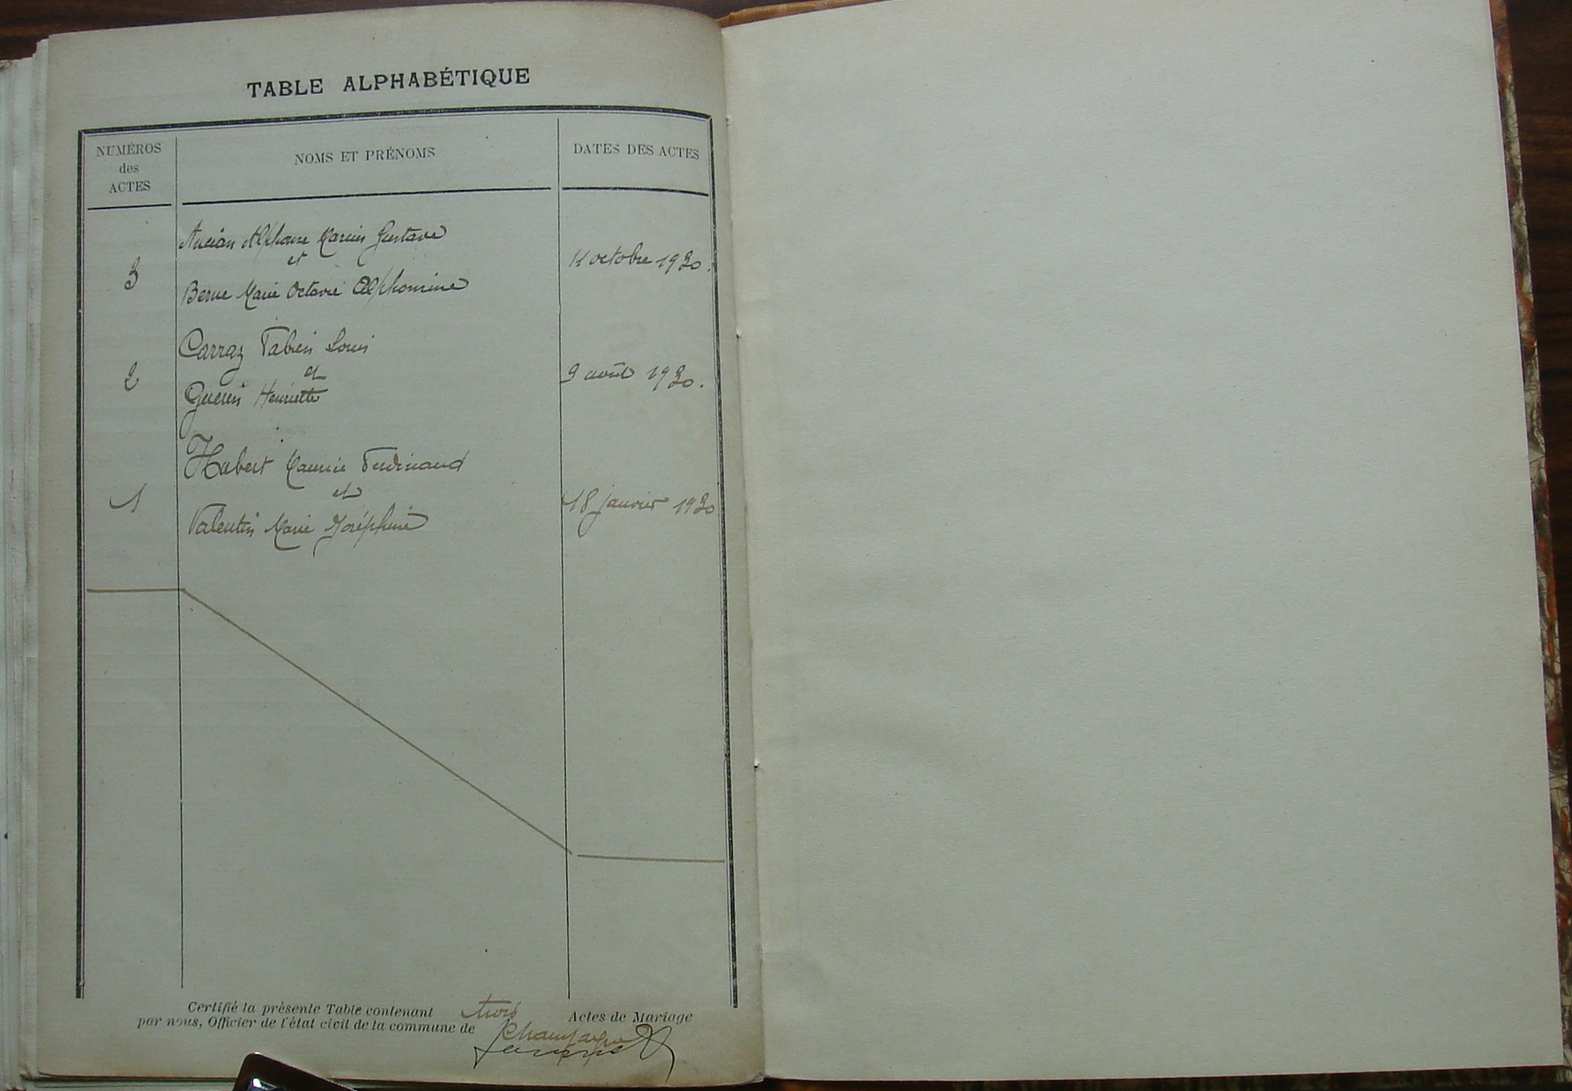 TABLE ALPHABÉTIQUE
NUMÉROS
des
ACTES
NOMS ET PRÉNOMS
DATES DES ACTES
Alphonse Marius Gustave
et
3
octobre 1930.
Berne Marie Octavie Alphonsine
Carraz Fabien Louis
et
2
9 août 1930.
Guerin Henriette
Hubert Maurice Ferdinand
et
1
18 janvier 1930
Valentin Marie Joséphine
Certifié la présente Table contenant trois Actes de Mariage
par nous, Officier de l'état civil de la commune de